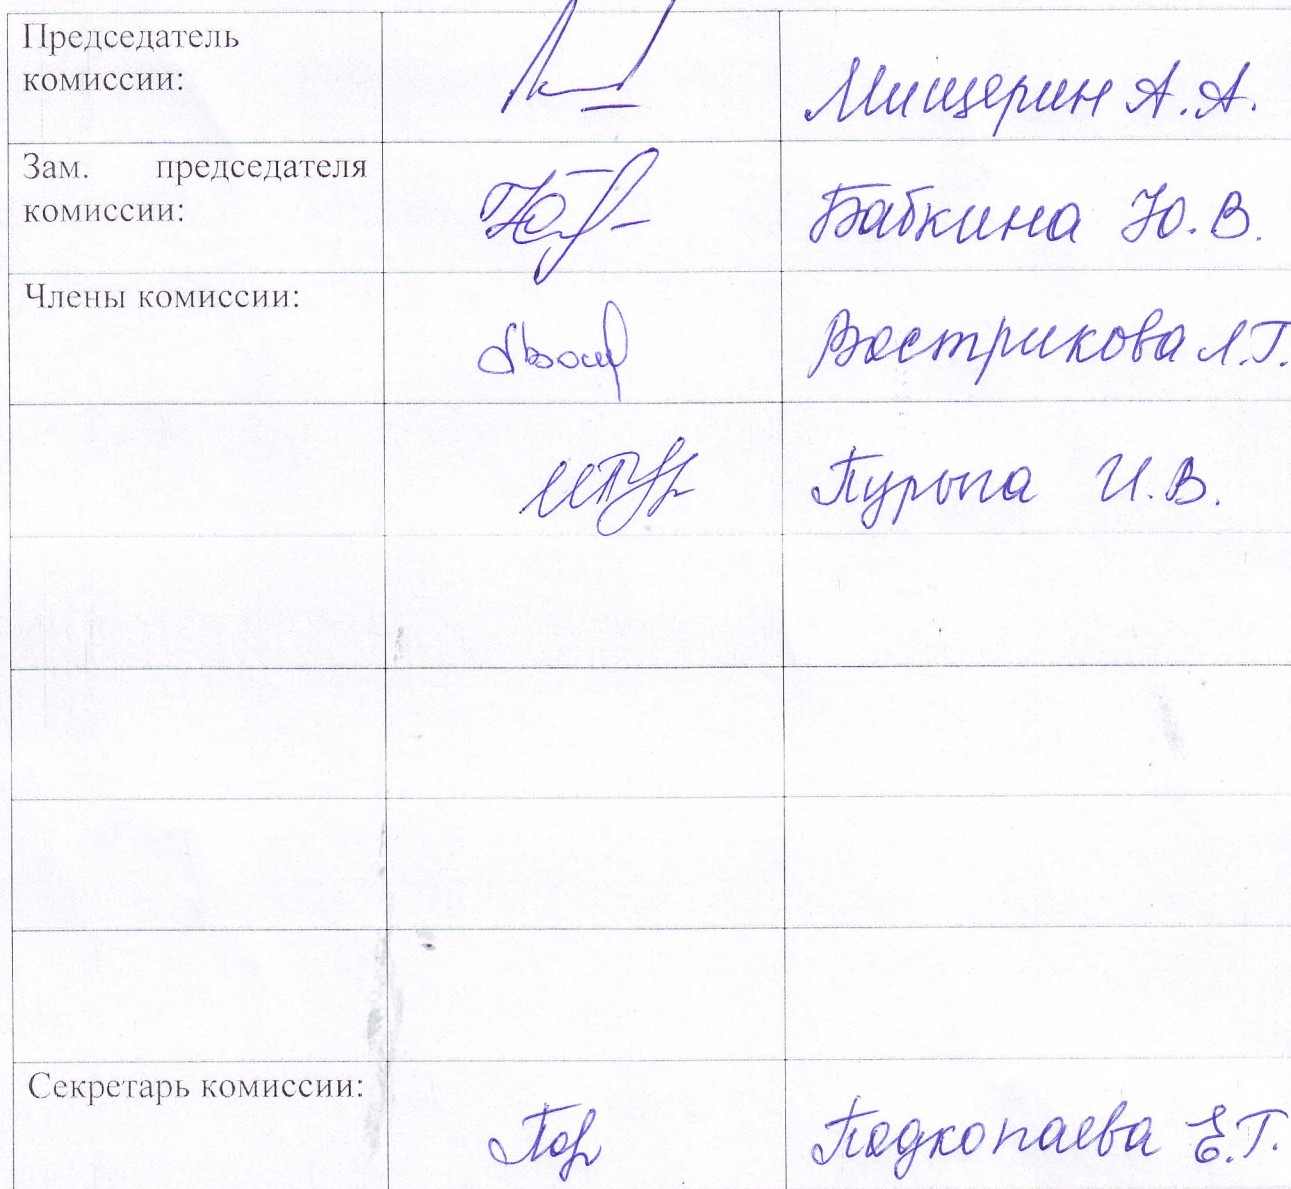 Председатель
комиссии:
Мищерин А.А.
Зам. председателя
комиссии:
Бабкина Ю.В.
Члены комиссии:
Вострикова Л.Г.
Пурыга И.В.
Секретарь комиссии:
Подкопаева Е.Г.